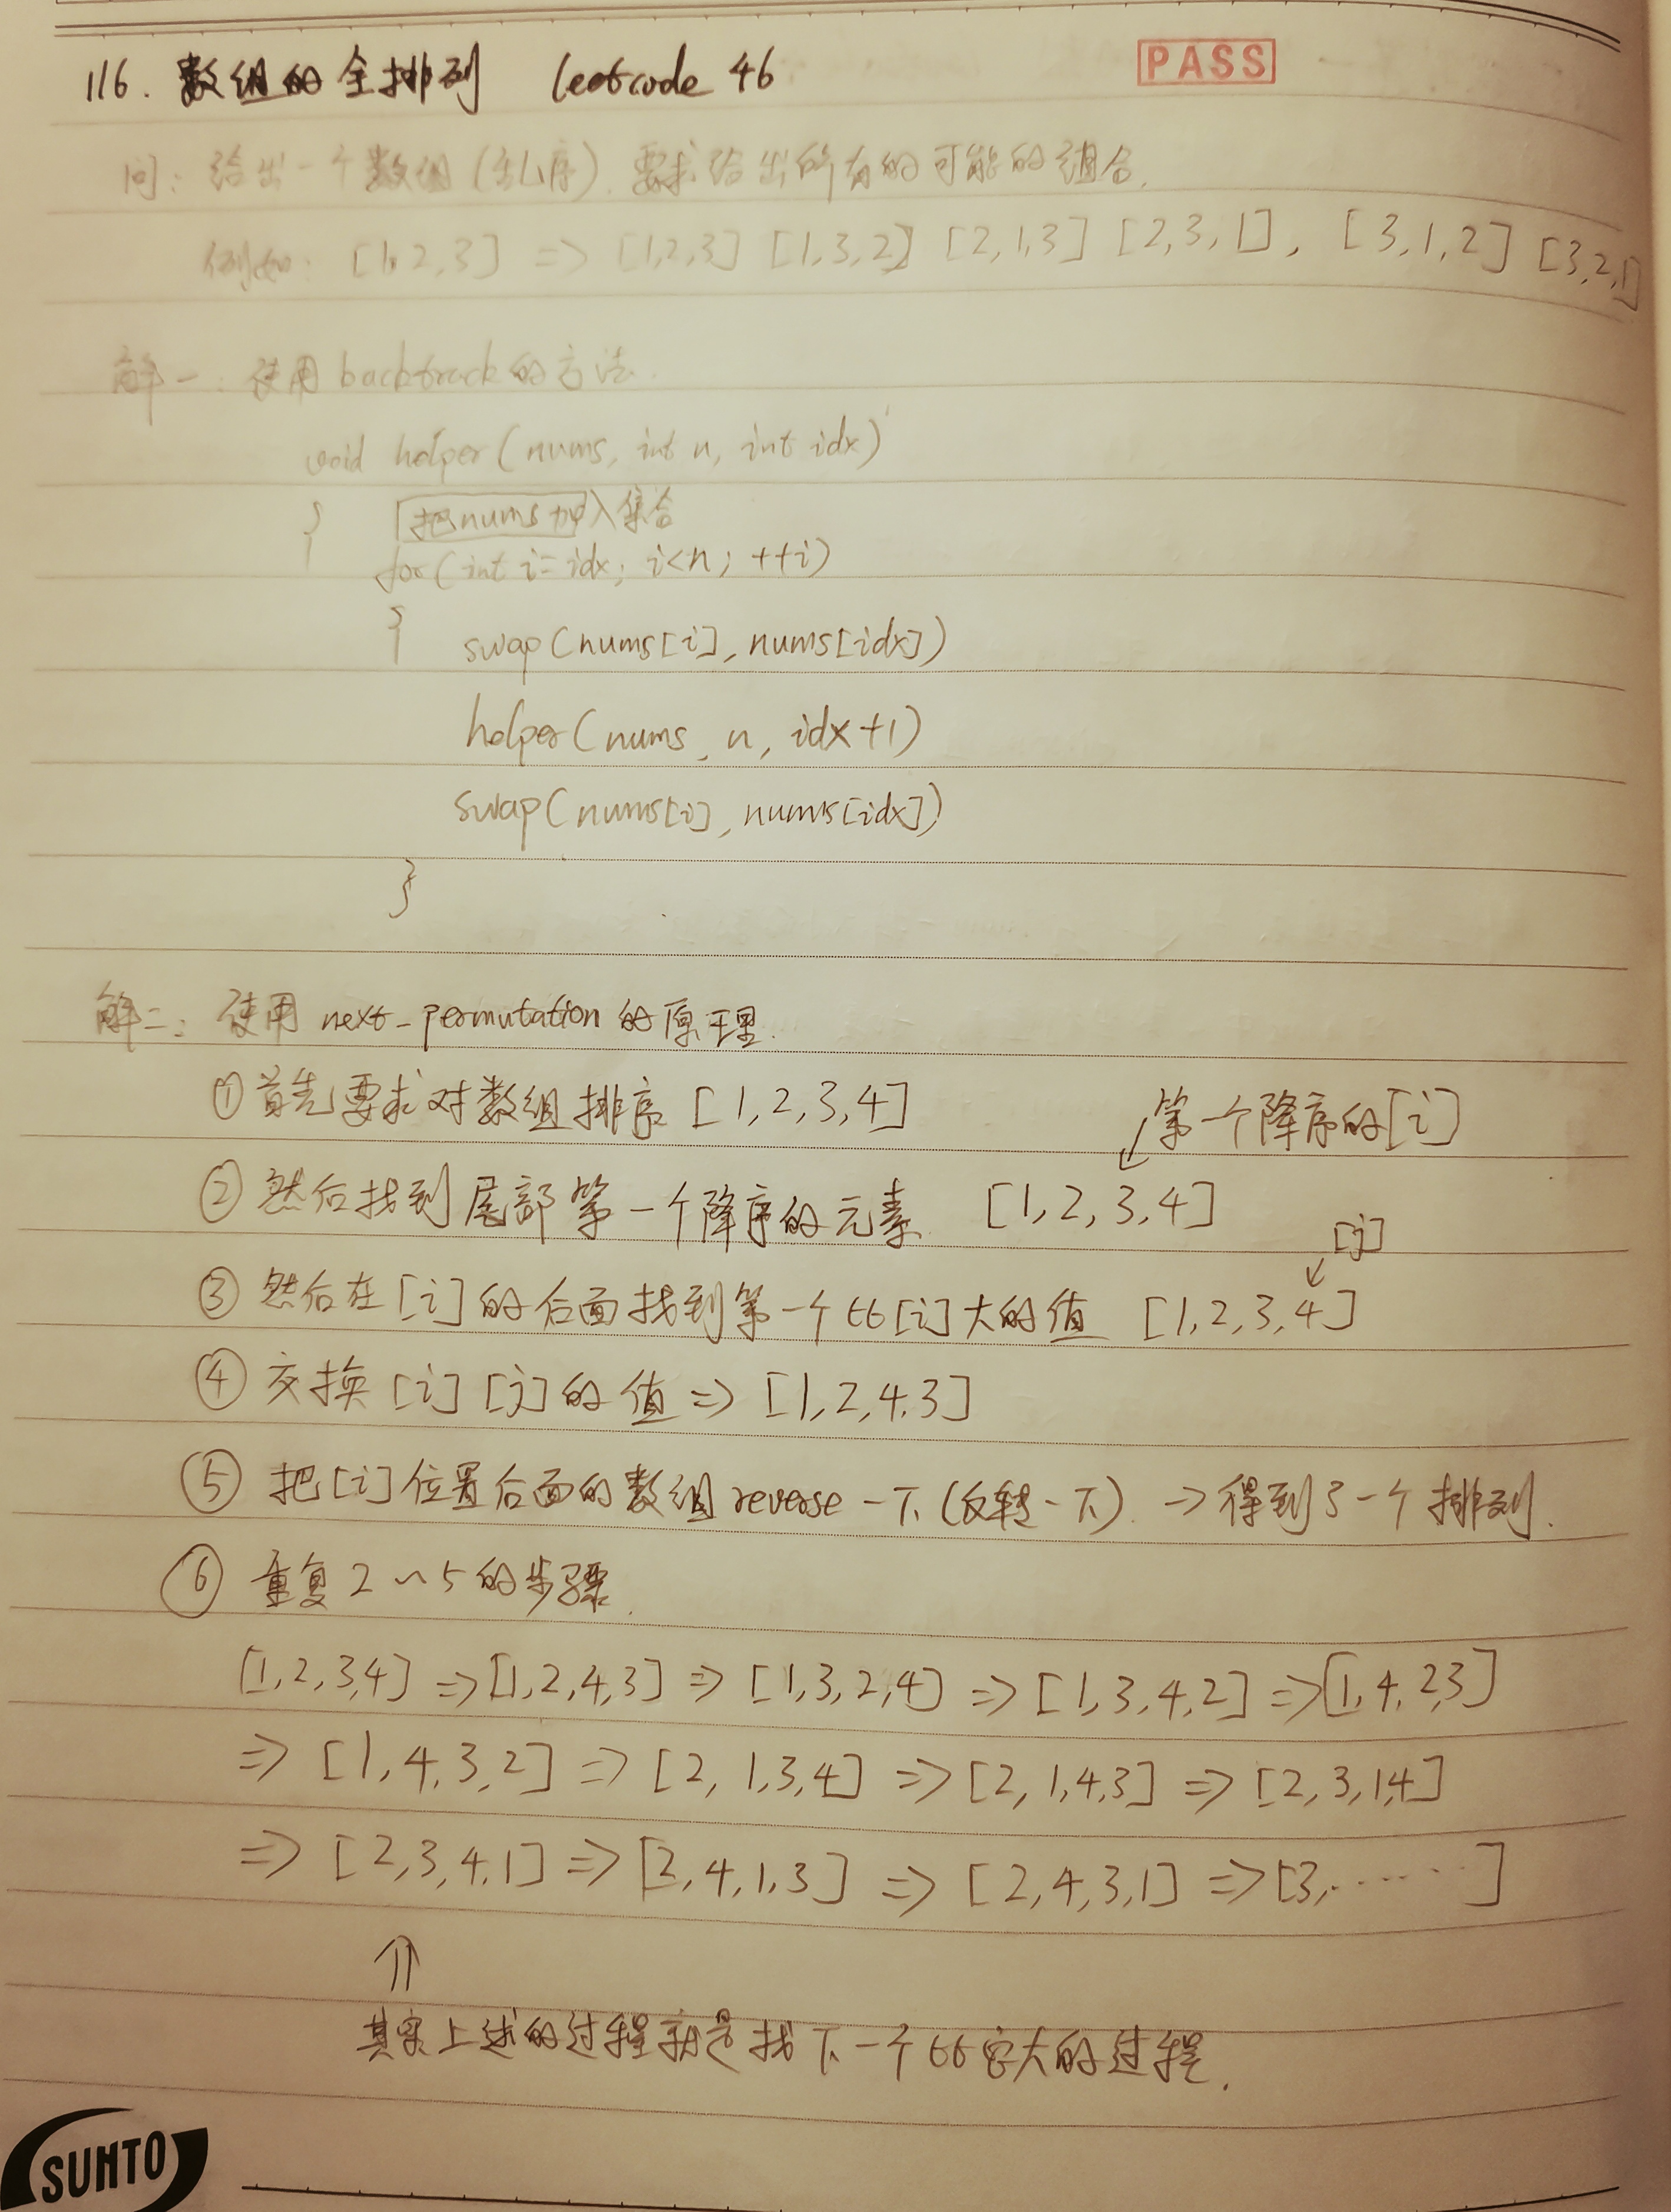 116. 数组的全排列 leetcode 46
PASS
问: 给出一个数组(乱序). 要求给出所有的可能的组合.
例如: [1,2,3] => [1,2,3] [1,3,2] [2,1,3] [2,3,1], [3,1,2] [3,2,1]
解一: 使用backtrack的方法.
void helper(nums, int n, int idx)
{ 把nums加入集合
for(int i=idx; i<n; ++i)
{ swap(nums[i], nums[idx])
helper(nums, n, idx+1)
swap(nums[i], nums[idx])
}
解二: 使用 next_permutation 的原理.
① 首先要求对数组排序 [1,2,3,4]
第一个降序的[i]
② 然后找到尾部第一个降序的元素 [1,2,3,4]
[j]
③ 然后在[i]的后面找到第一个比[i]大的值 [1,2,3,4]
④ 交换[i][j]的值 => [1,2,4,3]
⑤ 把[i]位置后面的数组reverse一下(反转一下). → 得到了一个排列.
⑥ 重复2~5的步骤.
[1,2,3,4] => [1,2,4,3] => [1,3,2,4] => [1,3,4,2] => [1,4,2,3]
=> [1,4,3,2] => [2,1,3,4] => [2,1,4,3] => [2,3,1,4]
=> [2,3,4,1] => [2,4,1,3] => [2,4,3,1] => [3,······]
⇑
其实上述的过程就是找下一个比它大的过程.
SUNTO